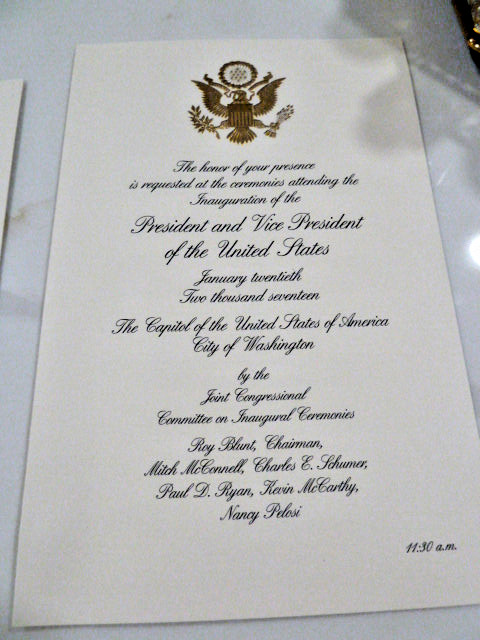 The honor of your presence
is requested at the ceremonies attending the
Inauguration of the
President and Vice President
of the United States
January twentieth
Two thousand seventeen
The Capitol of the United States of America
City of Washington
by the
Joint Congressional
Committee on Inaugural Ceremonies
Roy Blunt, Chairman,
Mitch McConnell, Charles E. Schumer,
Paul D. Ryan, Kevin McCarthy,
Nancy Pelosi
11:30 a.m.